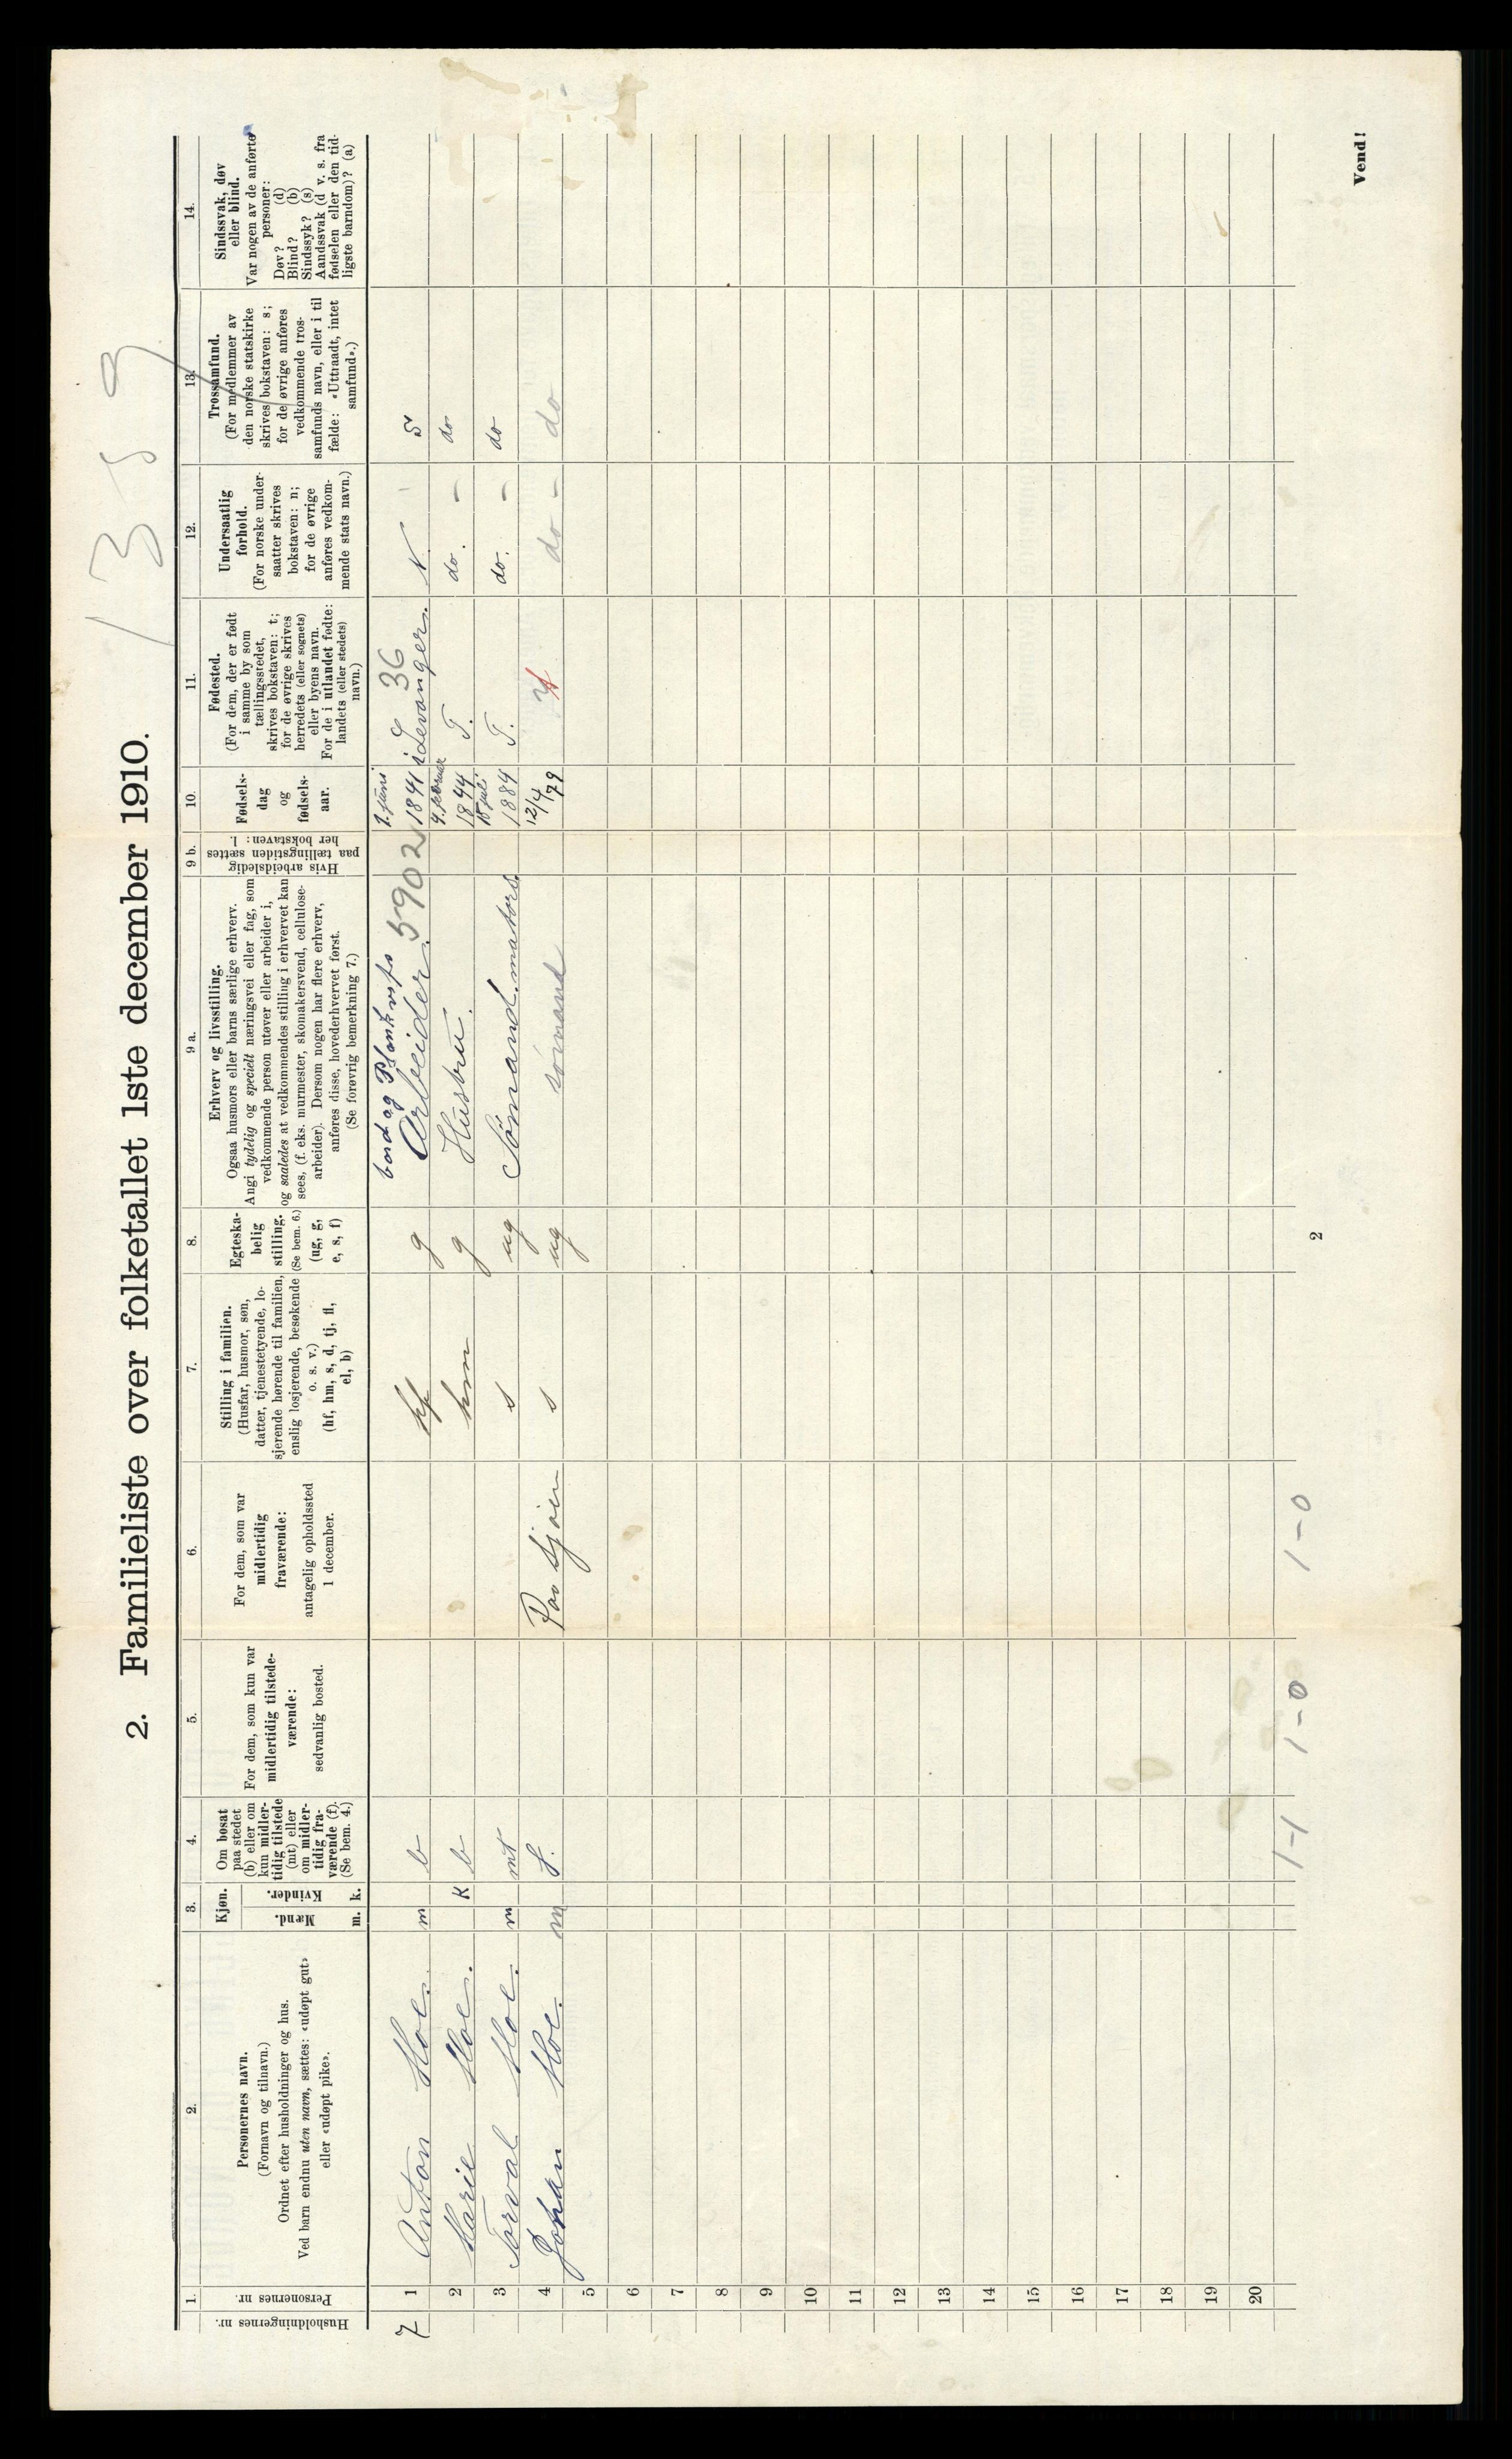 1359
2. Familieliste over folketallet 1ste december 1910.
1.
Husholdningernes nr.
Personernes nr.
2.
Personernes navn.
(Fornavn og tilnavn.)
Ordnet efter husholdninger og hus.
Ved barn endnu uten navn, sættes: «udøpt gut»
eller «udøpt pike».
3.
Kjøn.
Mænd.
Kvinder.
m. k.
4.
Om bosat
paa stedet
(b) eller om
kun midler-
tidig tilstede
(mt) eller
om midler-
tidig fra-
værende (f).
(Se bem. 4.)
5.
For dem, som kun var
midlertidig tilstede-
værende:
sedvanlig bosted.
6.
For dem, som var
midlertidig
fraværende:
antagelig opholdssted
1 december.
7.
Stilling i familien.
(Husfar, husmor, søn,
datter, tjenestetyende, lo-
sjerende hørende til familien,
enslig losjerende, besøkende
o. s. v.)
(hf, hm, s, d, tj, fl,
el, b)
8.
Egteska-
belig
stilling.
(Se bem. 6.)
(ug, g,
e, s, f)
9 a.
Erhverv og livsstilling.
Ogsaa husmors eller barns særlige erhverv.
Angi tydelig og specielt næringsvei eller fag, som
vedkommende person utøver eller arbeider i,
og saaledes at vedkommendes stilling i erhvervet kan
sees, (f. eks. murmester, skomakersvend, cellulose-
arbeider). Dersom nogen har flere erhverv,
anføres disse, hovederhvervet først.
(Se forøvrig bemerkning 7.)
9 b.
Hvis arbeidsledig
paa tællingstiden sættes
her bokstaven: l.
10.
Fødsels-
dag
og
fødsels-
aar.
11.
Fødested.
(For dem, der er født
i samme by som
tællingsstedet,
skrives bokstaven: t;
for de øvrige skrives
herredets (eller sognets)
eller byens navn.
For de i utlandet fødte:
landets (eller stedets)
navn.)
12.
Undersaatlig
forhold.
(For norske under-
saatter skrives
bokstaven: n;
for de øvrige
anføres vedkom-
mende stats navn.)
13.
Trossamfund.
(For medlemmer av
den norske statskirke
skrives bokstaven: s;
for de øvrige anføres
vedkommende tros-
samfunds navn, eller i til
fælde: «Uttraadt, intet
samfund».)
14.
Sindssvak, døv
eller blind.
Var nogen av de anførte
personer:
Døv? (d)
Blind? (b)
Sindssyk? (s)
Aandssvak (d v. s. fra
fødselen eller den tid-
ligste barndom)? (a)
7 1 Anton Moe. m b hf g Arbeider. 5902 1841 36 N. S
2 Marie Moe. k b hm g Husbru. 1844 T. do. - do
3 Torval Moe. m mt s ug Sömand. matros. 15 juli 1884 T. do. - do
4 Johan Moe. m f. Paa sjøen s ug sömand 12/4 79 do - do
5
6
7
8
9
10
11
12
13
14
15
16
17
18
19
20
1-1 1-0 1-0
2
Vend!